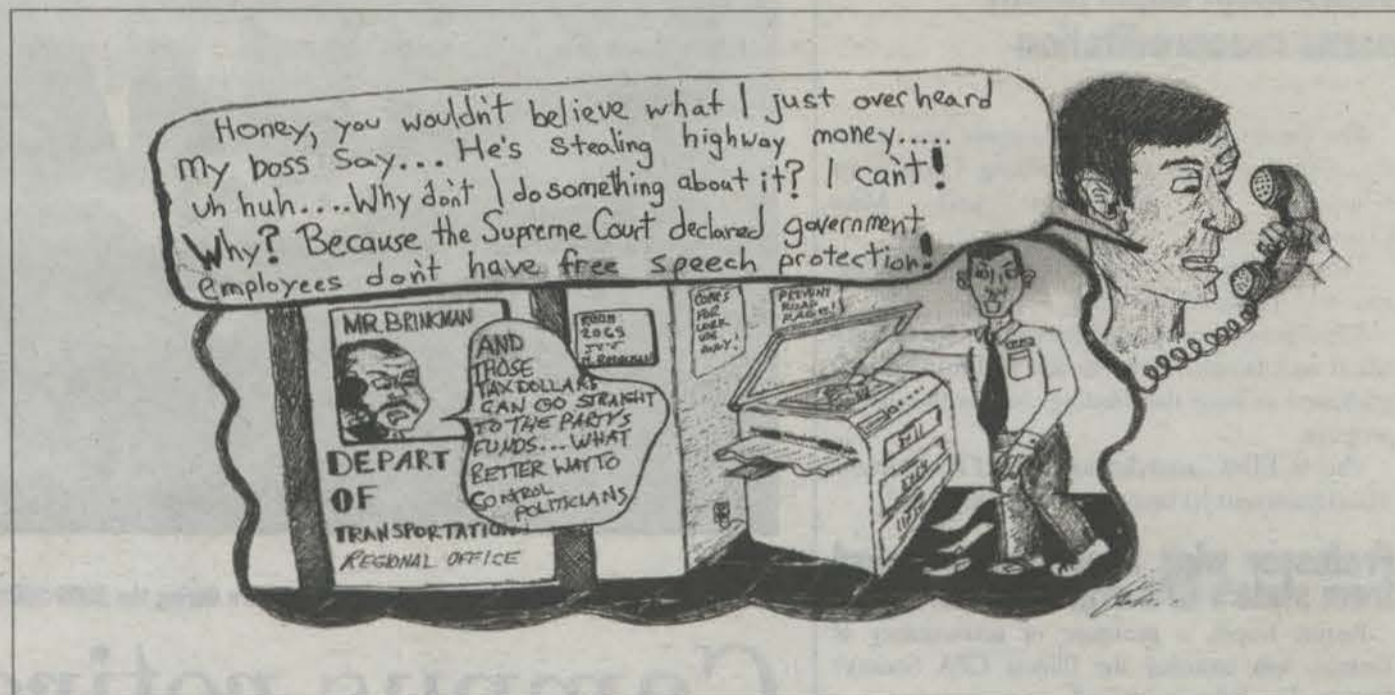 Honey, you wouldn't believe what I just overheard
my boss say... He's stealing highway money.....
uh huh....Why don't I do something about it? I can't!
Why? Because the Supreme Court declared government
employees don't have free speech protection!
MR. BRINKMAN
AND
THOSE
TAX DOLLARS
CAN GO STRAIGHT
TO THE PARTY'S
FUNDS... WHAT
BETTER WAY TO
CONTROL
POLITICIANS
DEPART
OF
TRANSPORTATION
REGIONAL OFFICE
ROOM
2065
COPIES
FOR
WORK
USE
ONLY!
PREVENT
ROAD
RAGE!!